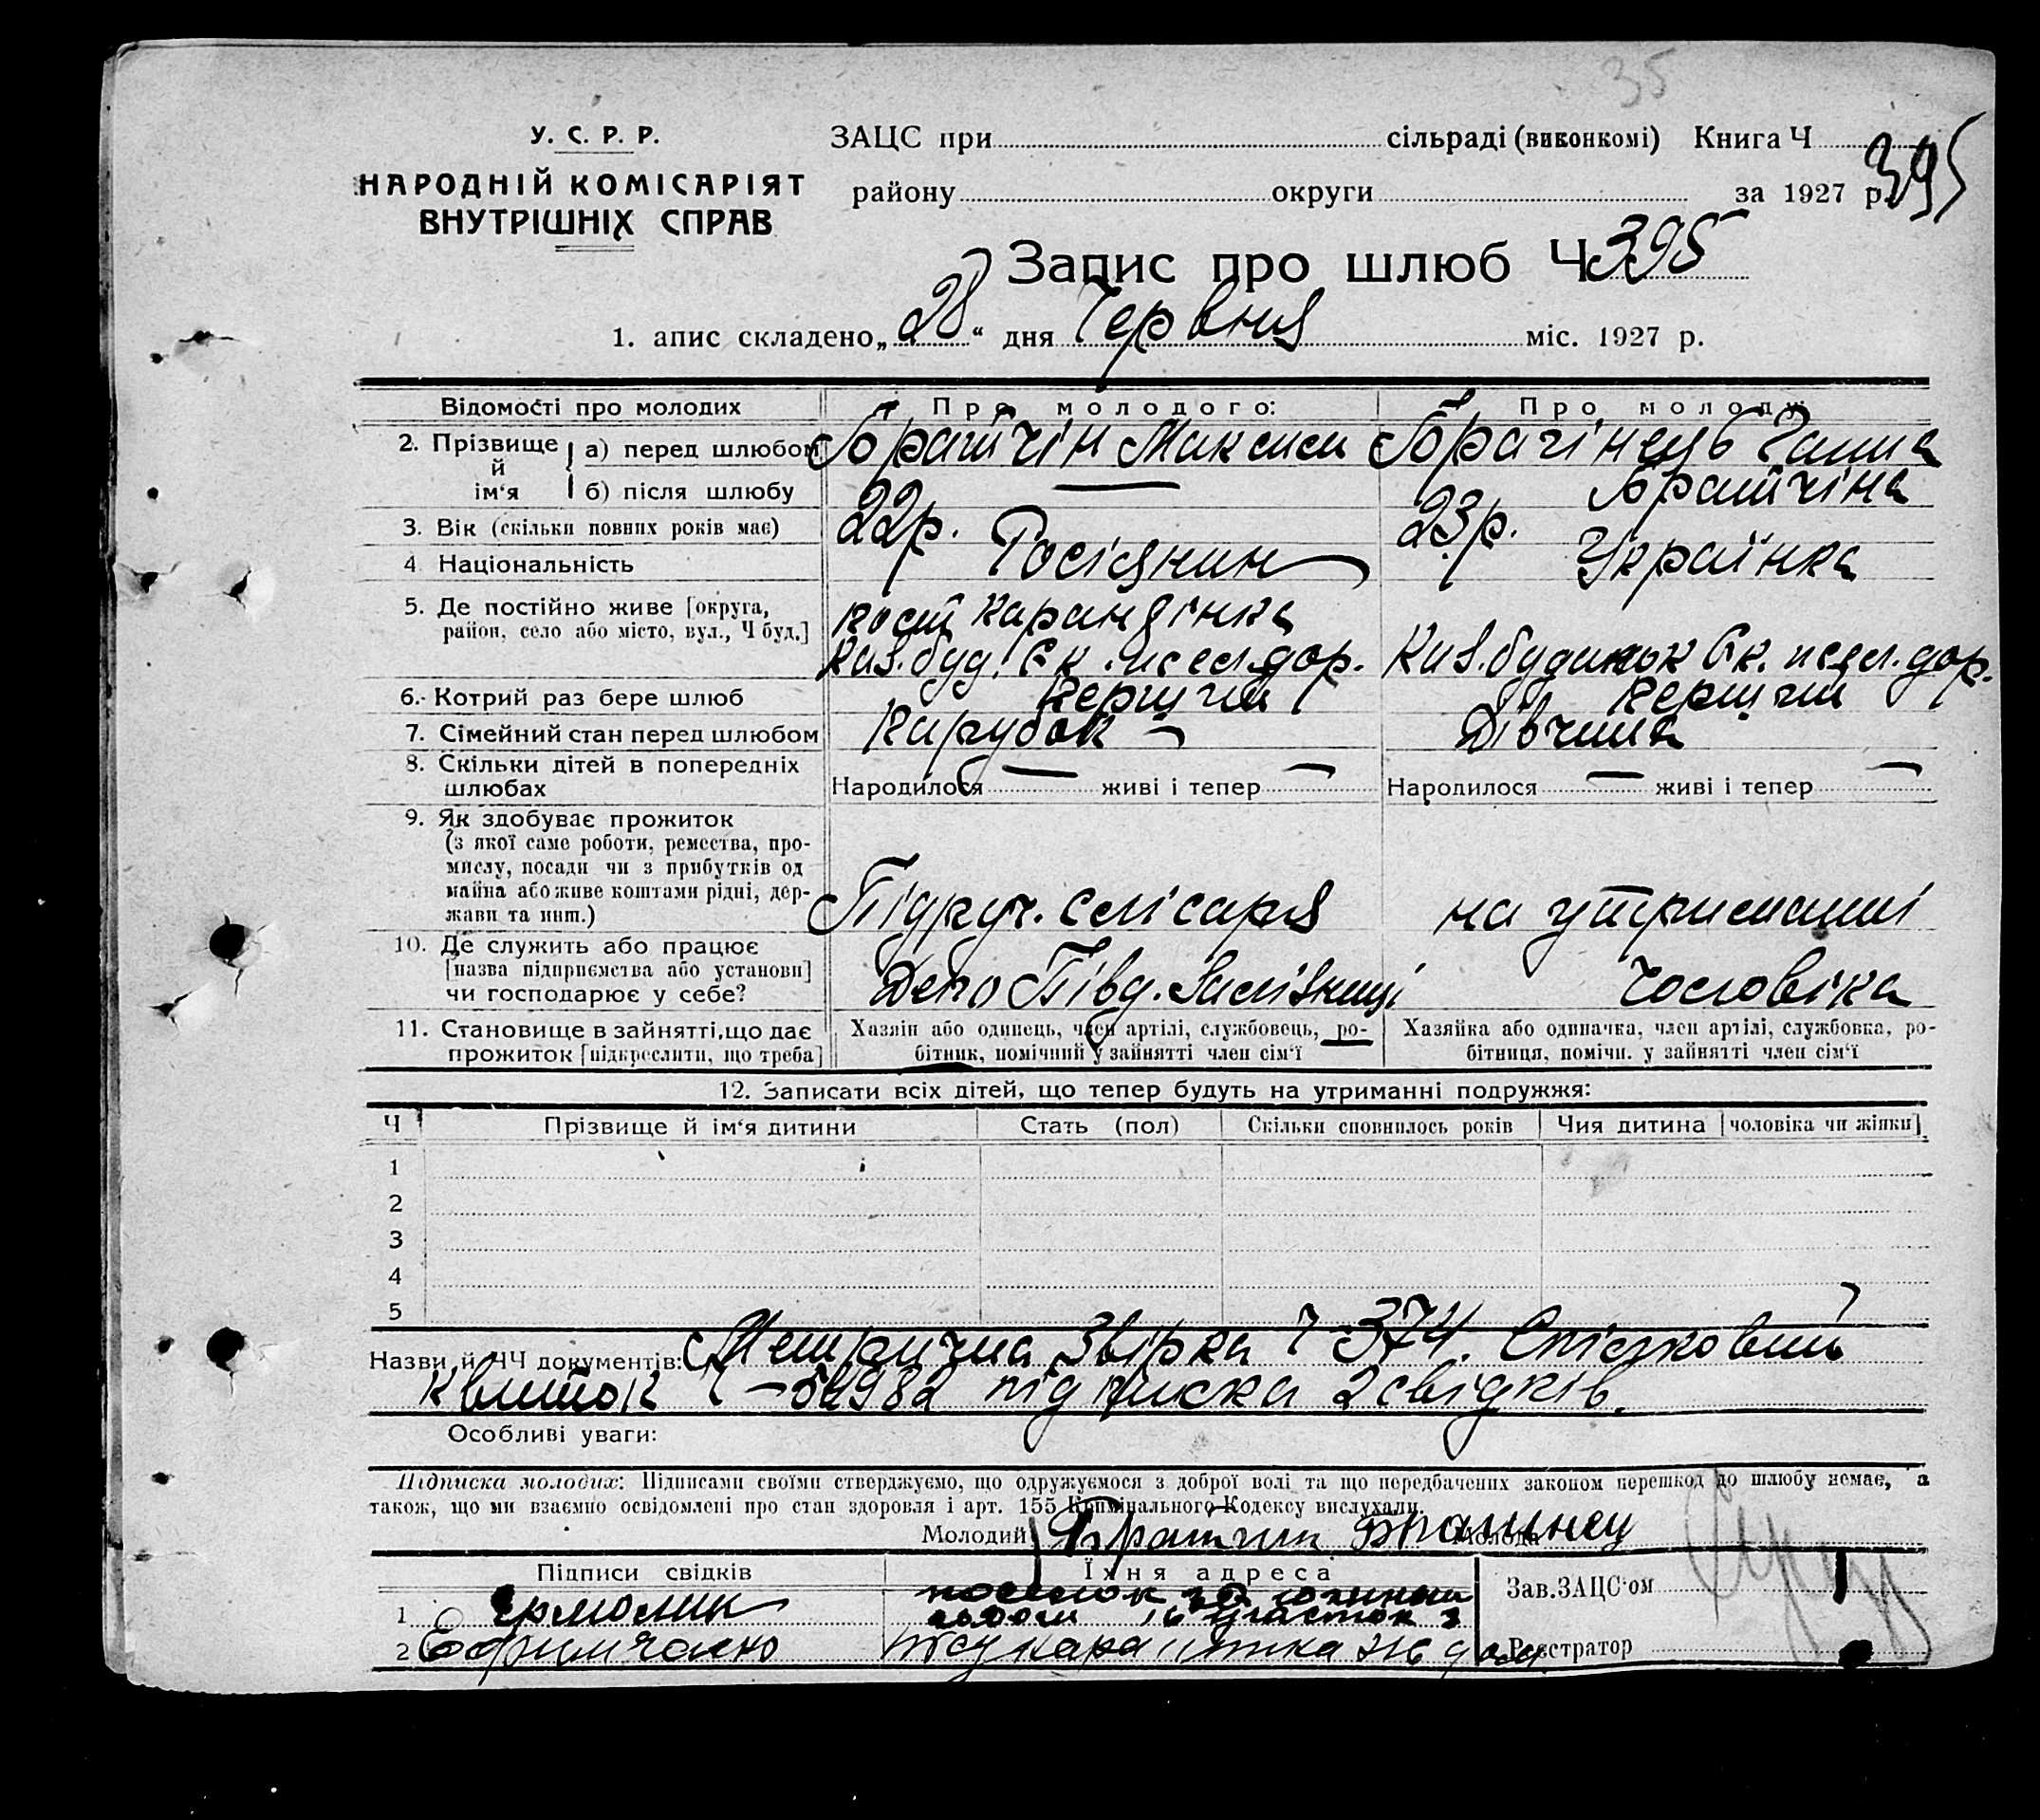 35
У. С. Р. Р.
НАРОДНІЙ КОМІСАРІЯТ
ВНУТРІШНІХ СПРАВ
ЗАЦС при сільраді (виконкомі) Книга Ч
району округи за 1927 р.
395
Запис про шлюб Ч 395
1. апис складено „28“ дня Червня міс. 1927 р.
Відомості про молодих
Про молодого:
Про молоду
2. Прізвище й ім‘я
а) перед шлюбом
Братчін Максим
Брагінець Ганна
б) після шлюбу
—
Братчіна
3. Вік (скільки повних років має)
22 р.
23 р.
4 Національність
Росіянин
Українка
5. Де постійно живе [округа,
район, село або місто, вул., Ч буд.]
Каз. буд. дор.
Каз. будинок дор.
6. Котрий раз бере шлюб
Перший
Перший
7. Сімейний стан перед шлюбом
Парубок
Дівчина
8. Скільки дітей в попередніх
шлюбах
Народилося — живі і тепер —
Народилося — живі і тепер —
9. Як здобуває прожиток
(з якої саме роботи, ремества, про-
мислу, посади чи з прибутків од
майна або живе коштами рідні, дер-
жави та инш.)
Підруч. слісаря
на утриманні
10. Де служить або працює
[назва підприємства або установи]
чи господарює у себе?
Депо Півд. Залізниці
Чоловіка
11. Становище в зайнятті, що дає
прожиток [підкреслити, що треба]
Хазяін або одинець, член артілі, службовець, ро-
бітник, помічний у зайнятті член сім‘ї
Хазяйка або одиначка, член артілі, службовка, ро-
бітниця, помічн. у зайнятті член сім‘ї
12. Записати всіх дітей, що тепер будуть на утриманні подружжя:
Ч
Прізвище й ім‘я дитини
Стать (пол)
Скільки сповнилось років
Чия дитина [чоловіка чи жінки]
1
2
3
4
5
Назви й ЧЧ документів: Метрична Звірка Ч 374. Спілковий
квиток Ч – підписка 2 свідків.
Особливі уваги:
Підписка молодих: Підписами своїми стверджуємо, що одружуємося з доброї волі та що передбачених законом перешкод до шлюбу немає, а
також, що ми взаємно освідомлені про стан здоровля і арт. 155 Кримінального Кодексу вислухали.
Молодий Братчин
Молода
Підписи свідків
Їхня адреса
Зав. ЗАЦС‘ом
1 Ермолин
участок 3
2
Реєстратор